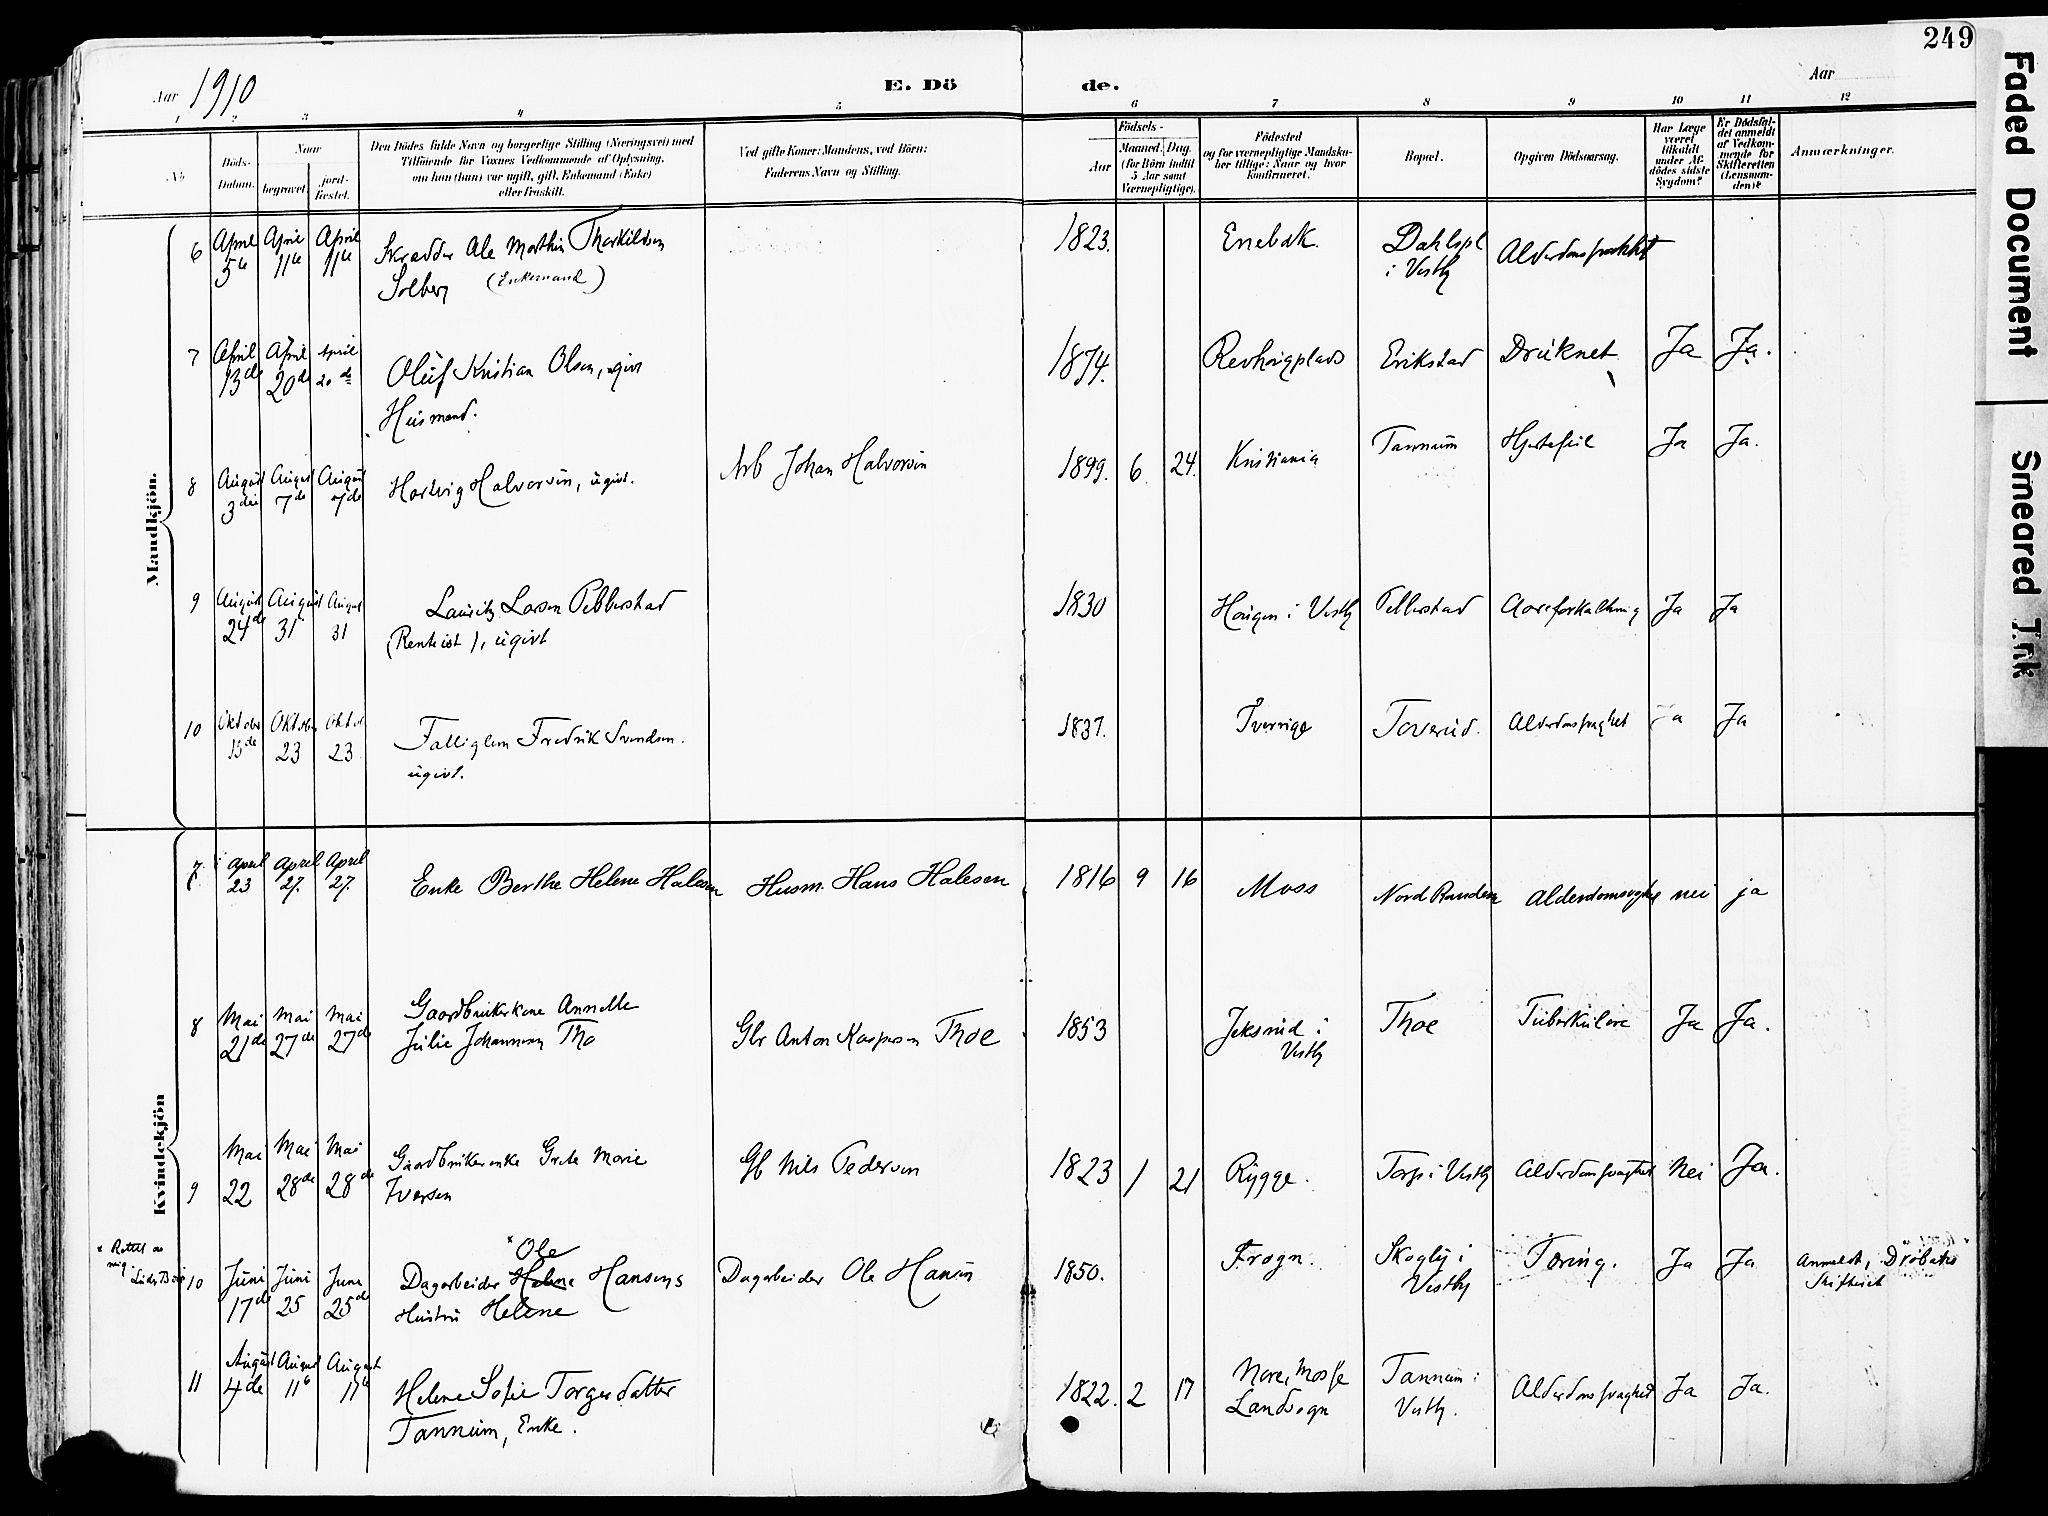 249
Aar 1910
E. Döde.
Aar
1 2 3 4 5 6 7 8 9 10 11 12
No
Döds-Datum.
Naar
begravet
jord-fæstet.
Den Dödes fulde Navn og borgerlige Stilling (Næringsvei) med
Tilföiende for Voxnes Vedkommende af Oplysning,
om han (hun) var ugift, gift, Enkemand (Enke)
eller fraskilt.
Ved gifte Koner: Mandens, ved Börn:
Faderens Navn og Stilling.
Födsels-
Aar
Maaned. Dag.
(for Börn indtil
5 Aar samt
Værnepligtige).
Födested
og for værnepligtige Mandska-
ber tillige: Naar og hvor
konfirmeret.
Bopæl.
Opgiven Dödsaarsag.
Har Læge
været
tilkaldt
under Af-
dödes sidste
Sygdom?
Er Dödsfal-
det anmeldt
af Vedkom-
mende for
Skifteretten
(Lensman-
den)?
Anmærkninger.
Mandkjön.
6 April 5te April 11te April 11te Skrædder Ole Marthin Thorkildsen 1823. Enebak. Dahlspl Alderdomssvakhet
Solberg (Enkemand) i Vestby
7 April 13de April 20de April 20de Oluf Kristian Olsen, ugivt 1874. Revhaugplads Erikstad Druknet Ja Ja.
Husmand.
8 August 3die August 7de August 7de Hartvig Halvorsen, ugivt. Arb Johan Halvorsen 1899. 6 24. Kristiania Tannum Hjertefeil Ja Ja.
9 August 24de August 31 August 31 Lauritz Larsen Pebberstad 1830 Haugen i Vestby Pebberstad Aareforkalkning Ja Ja
(Renteist), ugivt
10 Oktober 15de Oktober 23 Oktob 23 Fattiglem Fredrik Svendsen. 1837. Sverrige Toverud. Alderdomssvaghet Ja Ja
ugivt.
Kvindekjön
7 April 23 April 27. April 27. Enke Berthe Helene Halesen Husm. Hans Halesen 1816 9 16 Moss Nord Randem Alderdomssvaghet nei ja
8 Mai 21de Mai 27de Mai 27de Gaardbrukerkone Annette
Julie Johannesen Tho Gbr Anton Kaspersen Thoe 1853 Jeksrud i Vestby Thoe Tuberkulose Ja Ja.
9 Mai 22 Mai 28de Mai 28de Gaardbrukerenke Grete Marie Gb Nils Pedersen 1823 1 21 Rygge. Torp i Vestby Alderdomssvaghet Nei Ja.
Iversen
* Rettet av mig
10 Juni 17de Juni 25 June 25de Dagarbeider Helene *Ole Hansens Dagarbeider Ole Hansen 1850. Frogn. Skogly i Vestby Tæring. Ja Ja Anmeldt i Drøbaks Skifteret
Hustru Helene
11 August 4de August 11te August 11te Helene Sofie Torgersdatter 1822. 2 17 Nore, Mosse Landsogn Tannum i Vestby. Alderdomssvaghed Ja Ja.
Tannum, Enke.
Faded Document
Smeared Ink